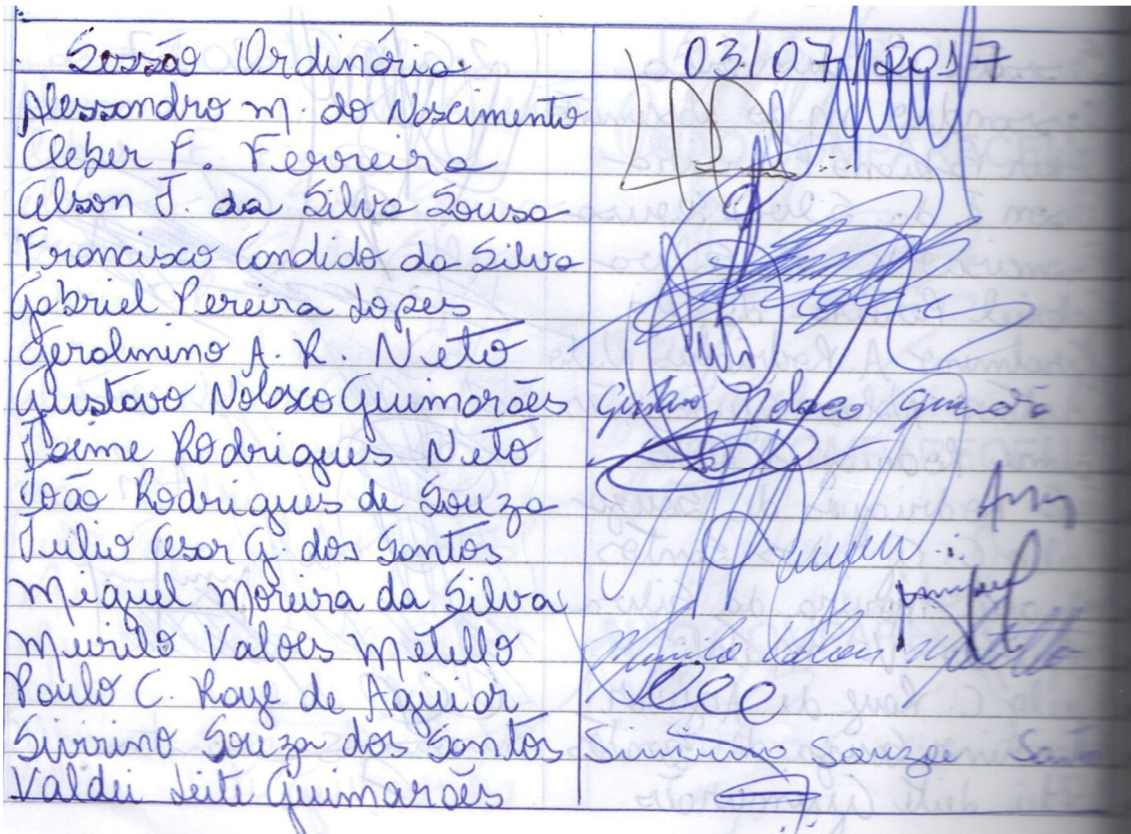 Sessão Ordinária 03/07/2017
Alessandro M. do Nascimento
Cleber F. Ferreira
Elson J. da Silva Sousa
Francisco Candido da Silva
Gabriel Pereira Lopes
Gerolmino A. R. Neto
Gustavo Nolasco Guimarães Gustavo Nolasco Guimarães
Jaime Rodrigues Neto
João Rodrigues de Souza
Julio Cesar G. dos Santos
Miguel Moreira da Silva
Murilo Valoes Metello Murilo Valoes Metello
Paulo C. Raye de Aguiar
Sivirino Souza dos Santos Sivirino Souza Santos
Valdei Leite Guimarães